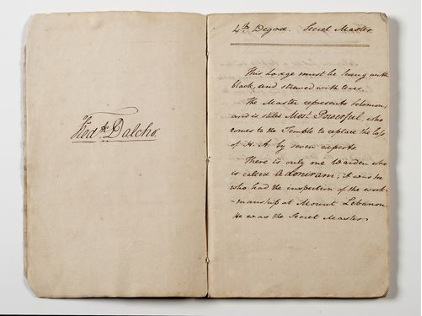 Fred.k Dalcho.
4th Degree. Secret Master.
This Lodge must be hung with
black, and strewed with tears.
The Master represents Solomon,
and is called Most Powerful, who
comes to the Temple to replace the loss
of H. A. by seven experts.
There is only one Warden who
is called Adoniram; it was he
who had the inspection of the work-
-manship at Mount Lebanon.
He was the Secret Master.